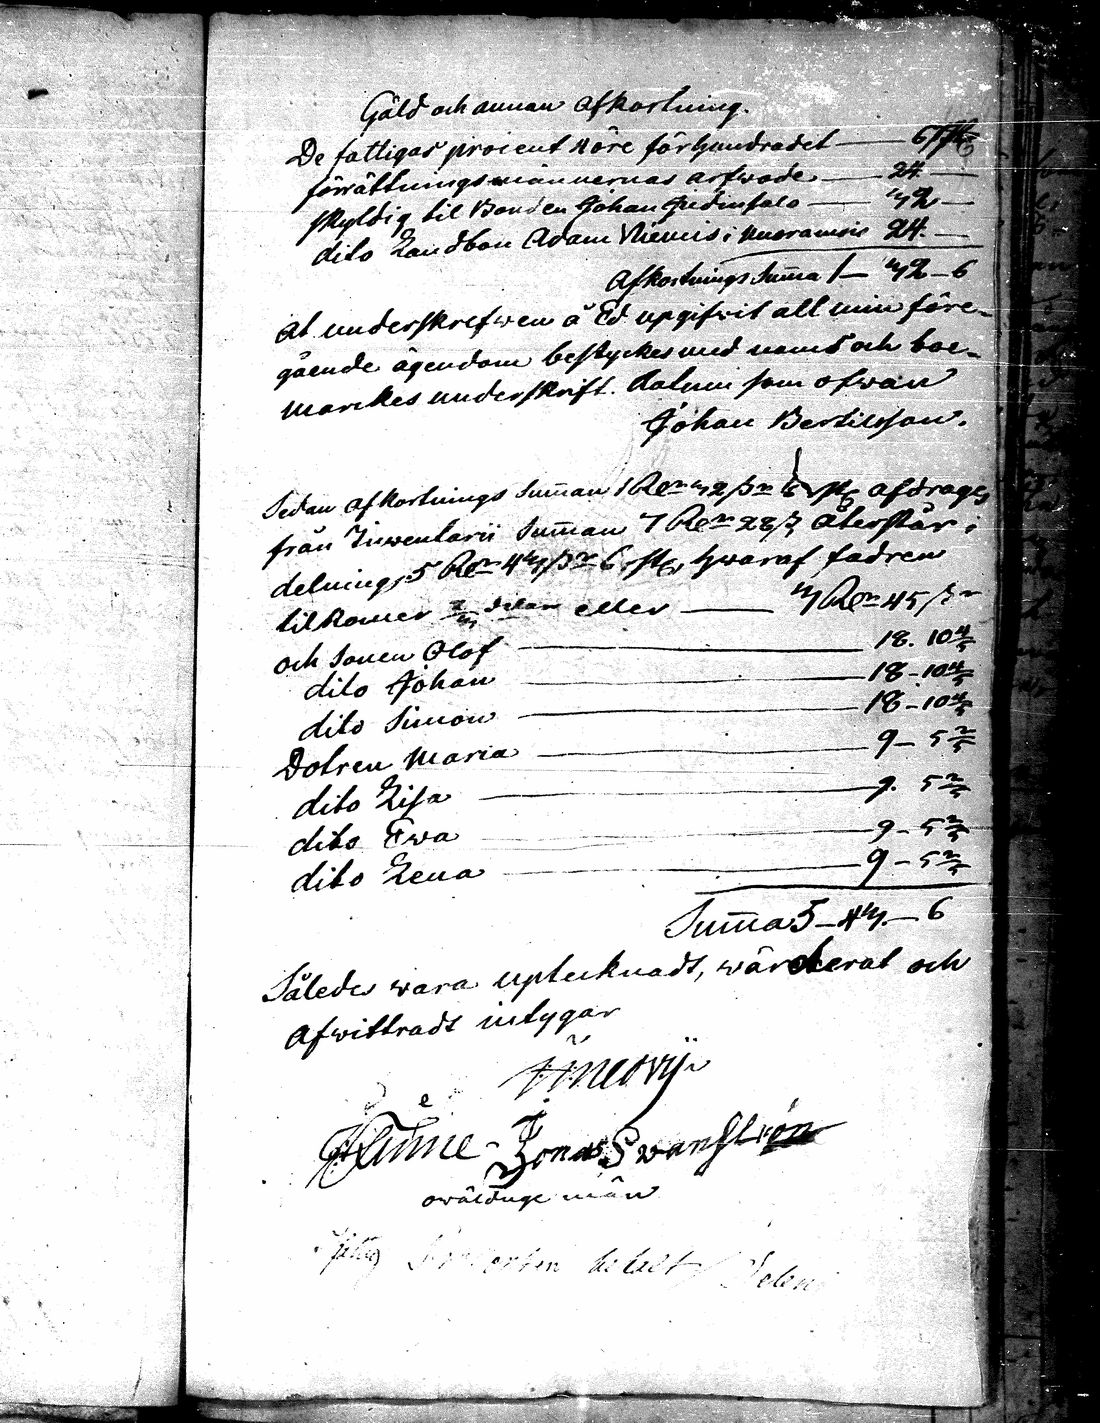 Gäld och annan Afkortning.
De fattigas procent 4 öre för hundradet — 6
förrättningsmännernas arfwode — 24 —
skyldig til Bonden Johan — 42 —
dito Landbon Adam Niemis i — 24 —
Afkortnings Suma 1 — 42 — 6
At underskrefwen å Ed upgifwit all min före-
gående ägendom bestyrkes med namns och boe-
märckes underskrift. Datum som ofwan
Johan Bertilsson.
Sedan afkortnings Suman 1 Rdr 42 sk 6 afdrages
från Inwentarii Suman 7 Rdr 28 återstår i
delning 5 Rdr 44 6 hwaraf fadren
tilkomer delar eller — 4 Rdr 45
och Sonen Olof — 18. 10 4/5
dito Johan — 18 – 10 4/5
dito Simon — 18 – 10 4/5
Dotren Maria — 9 – 5 2/5
dito Lisa — 9. 5 2/5
dito Ewa — 9 – 5 2/5
dito Lena — 9 – 5 2/5
Suma 5 – 44 – 6
Således wara uptecknadt, wärderat och
Afwittradt intygar
Jonas Swanström
owälduge män
betalt